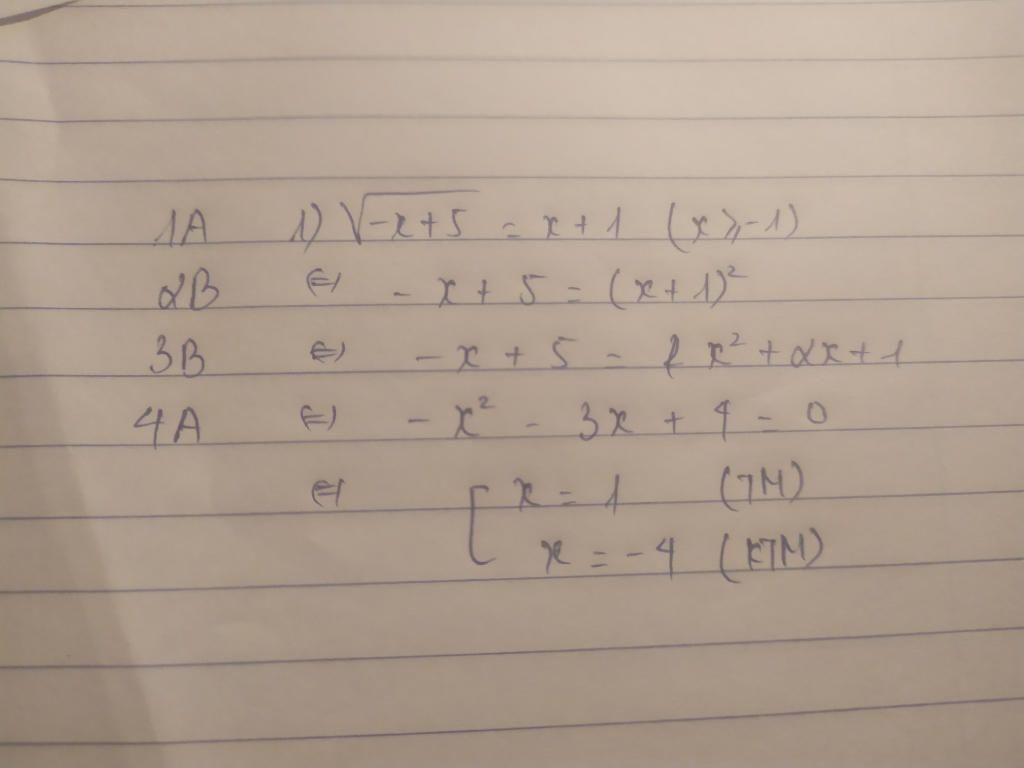 1A 1) √(-x+5) = x+1 (x ⩾ -1)
2B ⇔ -x+5 = (x+1)²
3B ⇔ -x+5 = x²+2x+1
4A ⇔ -x² - 3x + 4 = 0
⇔ [ x = 1 (TM)
x = -4 (KTM)